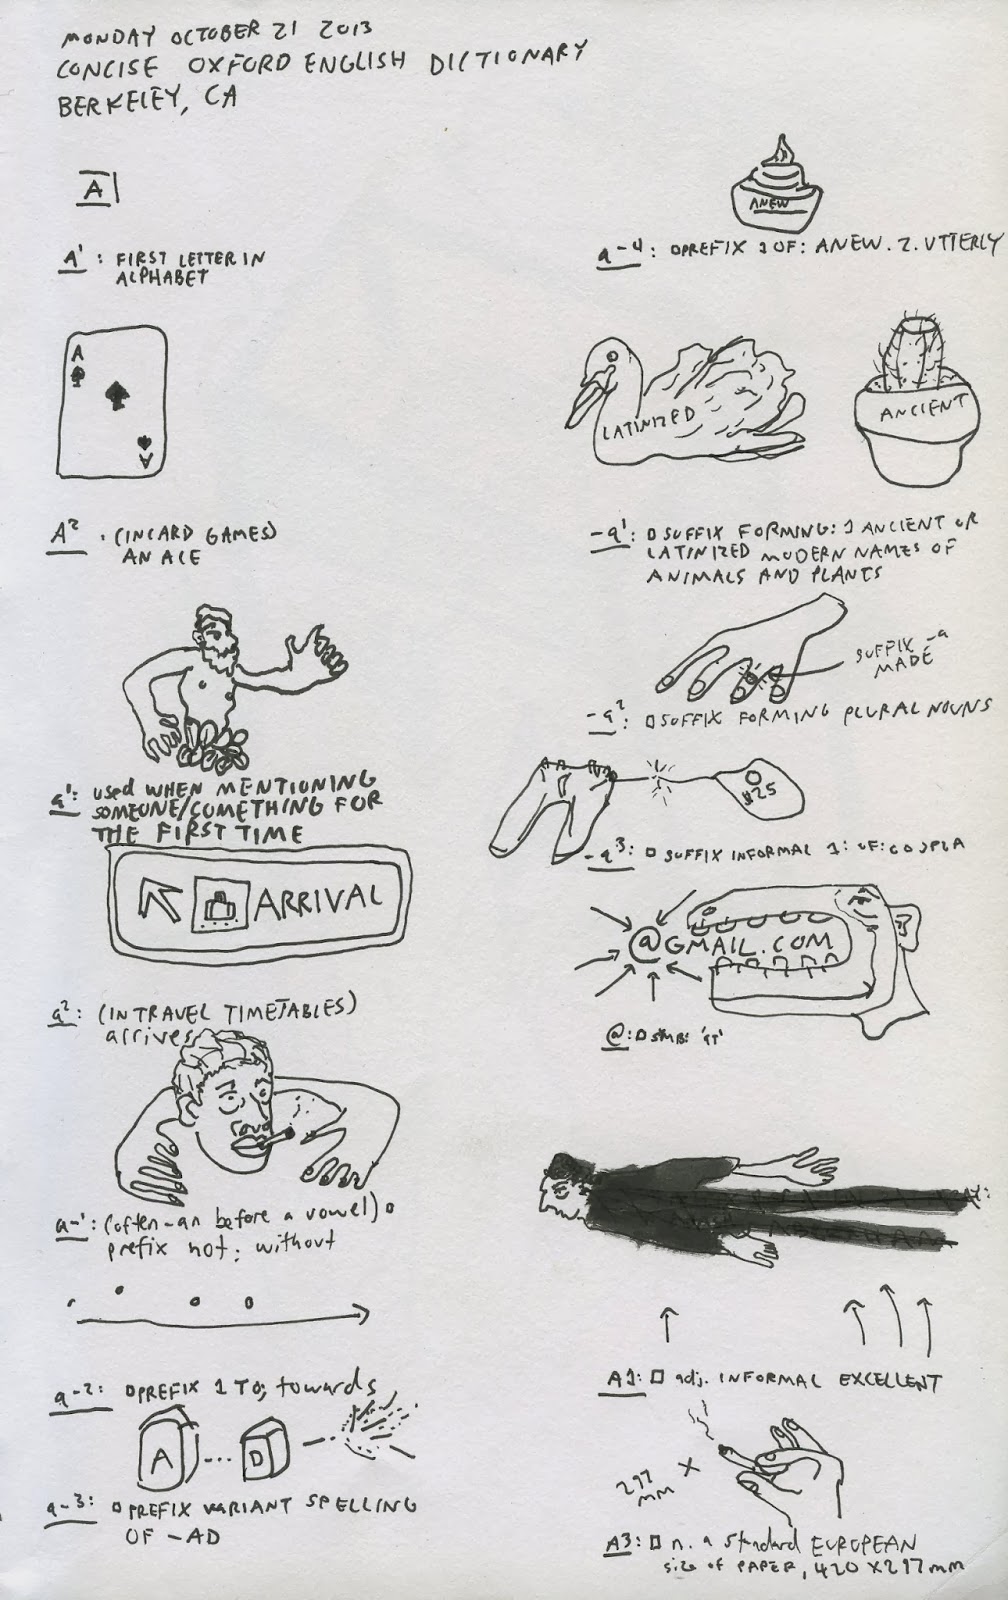 MONDAY OCTOBER 21 2013
CONCISE OXFORD ENGLISH DICTIONARY
BERKELEY, CA
A
A1: FIRST LETTER IN
ALPHABET
A
A
A2. (IN CARD GAMES)
AN ACE
a1: used WHEN MENTIONING
SOMEONE/COMETHING FOR
THE FIRST TIME
ARRIVAL
a2: (IN TRAVEL TIMETABLES)
arrives
a-1: (often-an before a vowel)
prefix not; without
a-2: PREFIX 1 TO; towards
A ... D
a-3: PREFIX VARIANT SPELLING
OF -AD
ANEW
a-4: PREFIX 1 OF: ANEW. 2. UTTERLY
LATINIZED
ANCIENT
-a1: SUFFIX FORMING: 1 ANCIENT OR
LATINIZED MODERN NAMES OF
ANIMALS AND PLANTS
SUFFIX -a
MADE
-a2: SUFFIX FORMING PLURAL NOUNS
$25
-a3: SUFFIX INFORMAL 1: OF: COSPLA
@GMAIL.COM
@: SMB: 'AT'
A1: adj. INFORMAL EXCELLENT
297 X
MM
A3: n. a standard EUROPEAN
size of PAPER, 420 X 297mm